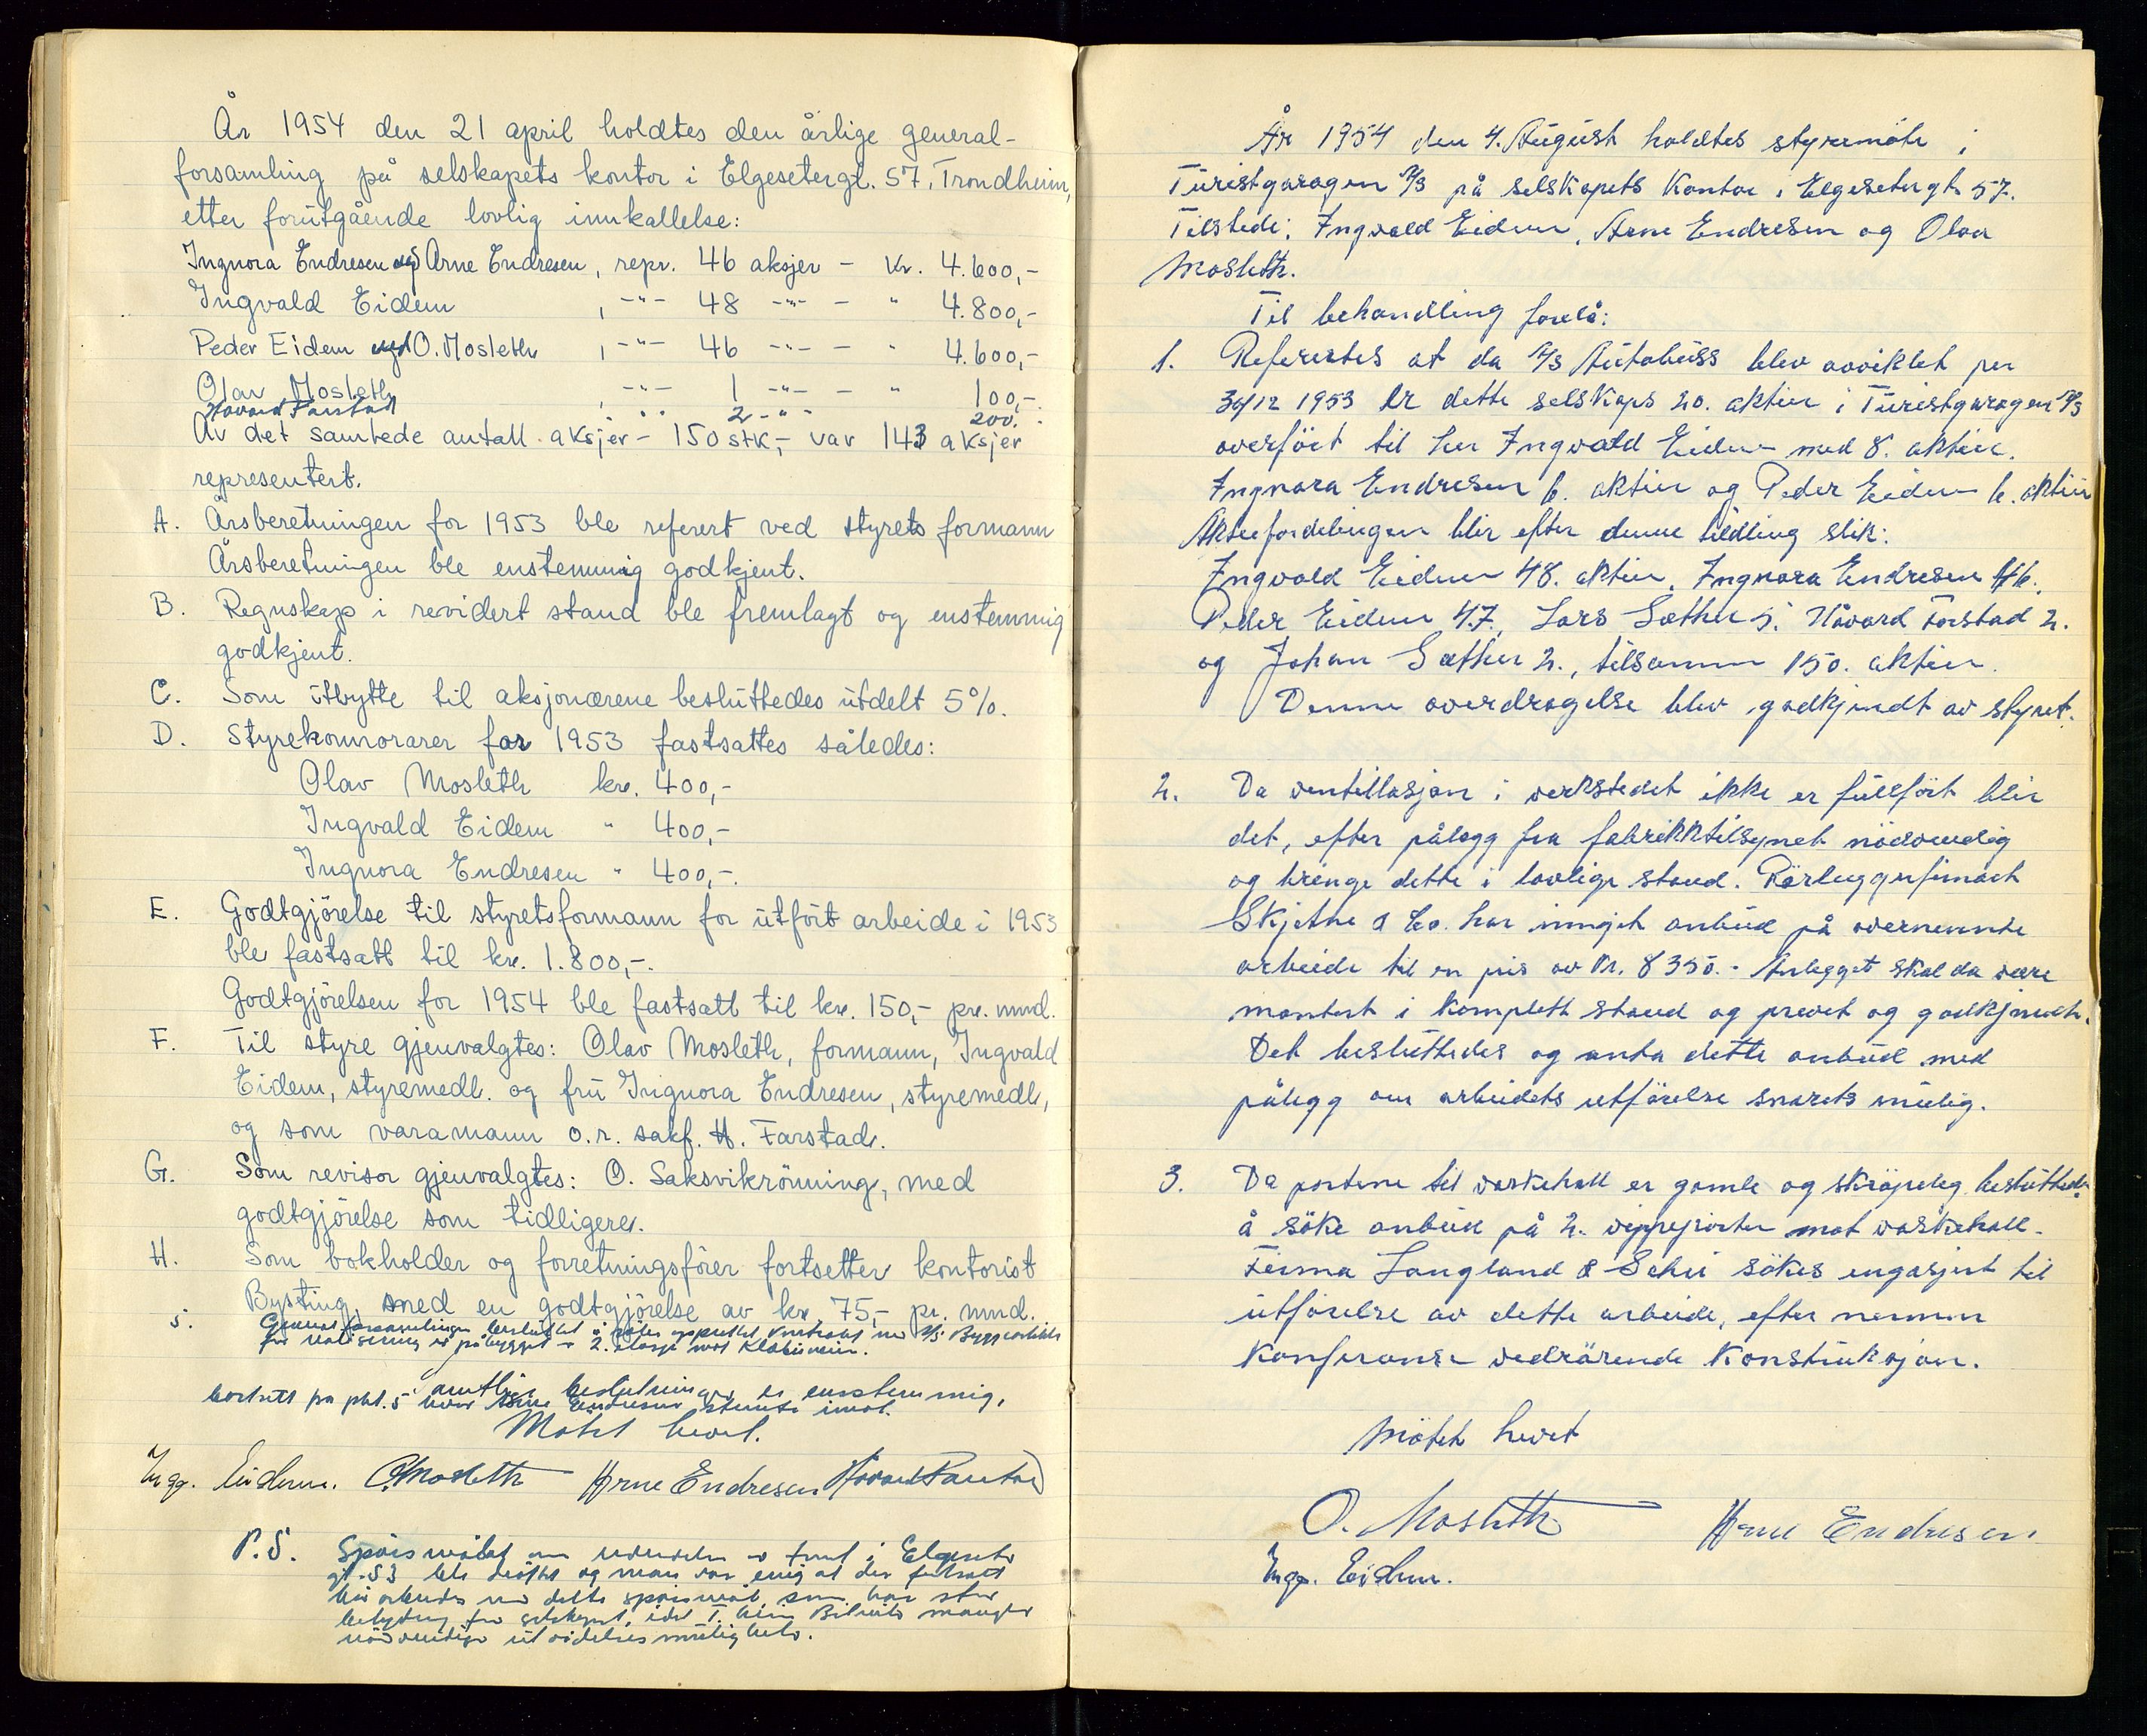 År 1954 den 21 april holdtes den årlige general-
forsamling på selskapets kontor i Elgesetergt. 57, Trondheim,
etter forutgående lovlig innkallelse:
Ingnora Endresen ved Arne Endresen, repr. 46 aksjer - kr. 4.600,-
Ingvald Eidem , -"- 48 -"- - " 4.800,-
Peder Eidem ved O. Mosleth , -"- 46 -"- - " 4.600,-
Olav Mosleth , -"- 1 -"- - " 100,-
Håvard Farstad " " 2 - " - 200.
Av det samlede antall aksjer - 150 stk,- var 143 aksjer
representert.
A. Årsberetningen for 1953 ble referert ved styrets formann
Årsberetningen ble enstemmig godkjent.
B. Regnskap i revidert stand ble fremlagt og enstemmig
godkjent.
C. Som utbytte til aksjonærene besluttedes utdelt 5%.
D. Styrehonnorarer for 1953 fastsattes således:
Olav Mosleth kr. 400,-
Ingvald Eidem " 400,-
Ingnora Endresen " 400,-.
E. Godtgjörelse til styretsformann for utfört arbeide i 1953
ble fastsatt til kr. 1.800,-.
Godtgjörelsen for 1954 ble fastsatt til kr. 150,- pr. mnd.
F. Til styre gjenvalgtes: Olav Mosleth, formann, Ingvald
Eidem, styremedl. og fru Ingnora Endresen, styremedl,
og som varamann o.r. sakf. H. Farstad.
G. Som revisor gjenvalgtes: O. Saksvikrönning, med
godtgjörelse som tidligere.
H. Som bokholder og forretningsförer fortsetter kontorist
Bysting, med en godtgjörelse av kr. 75,- pr. mnd.
5. Generalforsamlingen besluttet å söke opprettet kontrakt med A/S
for realisering av påbygget - 2. etasje mot Klæbuveien.
Samtlige beslutninger er enstemmig,
bortsett fra pkt. 5 hvor Arne Endresen stemte imot.
Mötet hevet.
Ingv. Eidem. O. Mosleth Arne Endresen Håvard Farstad
P.S. Spörsmålet om av tomt i Elgeseter
gt. 53 ble dröftet og man var enig at der fortsatt
bör arbeides med dette spörsmål som har stor
betydning for selskapet, idet T.heim Bilruter mangler
nödvendige utvidelsesmulighet.
År 1954 den 4. August holdtes styremöte i
Turistgaragen A/S på selskapets kontor i Elgesetergt 57.
Tilstede: Ingvald Eidem, Arne Endresen og Olav
Mosleth.
Til behandling forelå:
1. Refereres at da A/S Autobuss blev avviklet per
30/12 1953 er dette selskaps 20. aktier i Turistgaragen A/S
overfört til herr Ingvald Eidem med 8. aktier.
Ingnora Endresen 6. aktier og Peder Eidem 6. aktier
Aktiefordelingen blir efter denne tildeling slik:
Ingvald Eidem 48. aktier, Ingnora Endresen 46.
Peder Eidem 47., Lars Sæther 5. Håvard Farstad 2.
og Johan Sæther 2., tilsammen 150. aktier.
Denne overdragelse blev godkjendt av styret.
2. Da ventillasjon i verkstedet ikke er fullfört blir
det, efter pålegg fra fabrikktilsynet nödvendig
og bringe dette i lovlige stand. Rörleggerfirmaet
Skjetne & Co. har inngit anbud på overnevnte
arbeide til en pris av Kr. 8350.- Anlegget skal da være
montert i komplett stand og prövet og godkjendt.
Det besluttedes og anta dette anbud med
pålegg om arbeidets utförelse snarets mulig.
3. Da portene til vaskehall er gamle og skröpelig besluttedes
å söke anbud på 2. vippeporter mot vaskehall.
Firma Langland & Schei sökes engasjert til
utförelse av dette arbeide, efter nermere
konferanse vedrörende konstruksjon.
Mötet hevet
O. Mosleth Arne Endresen
Ingv. Eidem.